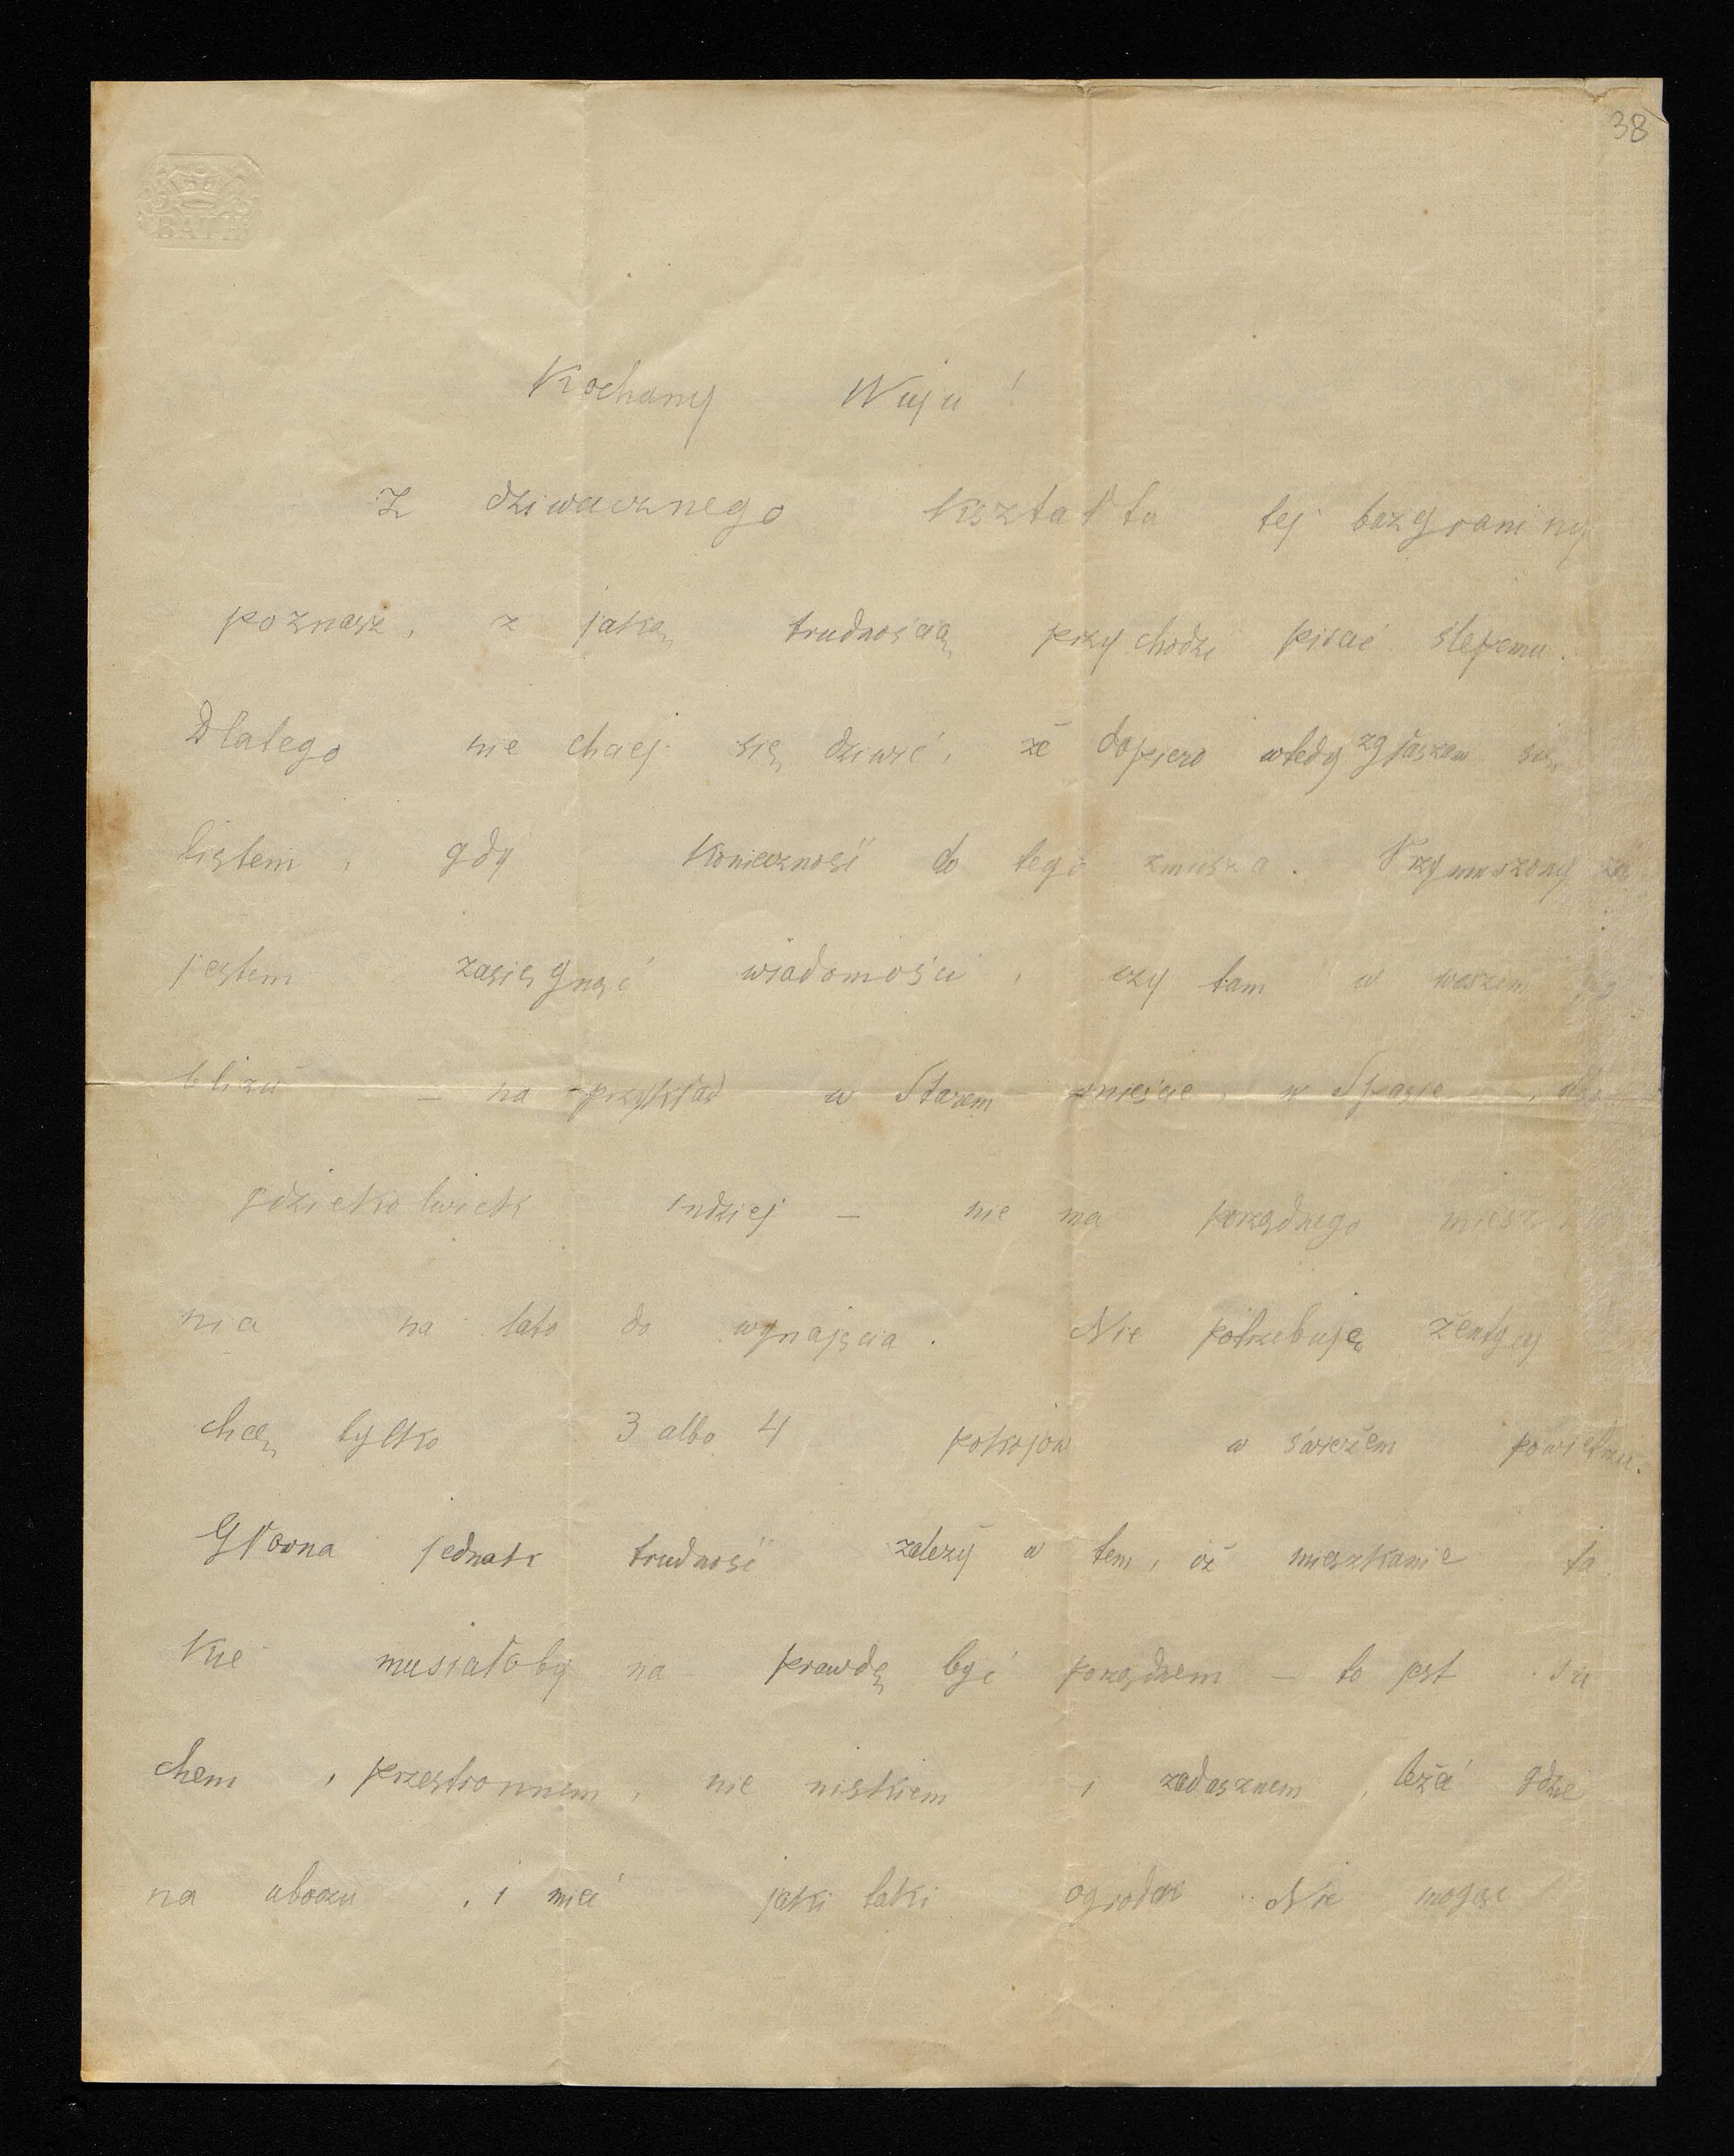 38
BATH
Kochany Wuju!
Z dziwacznego kształtu tej bazgraniny
poznasz, z jaką trudnością przychodzi pisać ślepemu.
Dlatego nie chciej się dziwić, że dopiero wtedy zgłaszam się
listem, gdy konieczność do tego zmusza. Przymuszony
jestem zasięgnąć wiadomości, czy tam w waszem
bliżu – na przykład w Starem mieście, w Spasie,
gdziekolwiek indziej – nie ma porządnego mieszka
nia na lato do wynajęcia. Nie potrzebuję żentycy
chcę tylko 3 albo 4 pokojów w świeżem powietrzu.
Głowna jednak trudność zależy w tem, iż mieszkanie ta
kie musiałoby na prawdę być porządnem – to jest su
chem, przestronnem, nie niskiem i zadusznem, leżeć gdzie
na uboczu, i mieć jaki taki ogrodek. Nie mogąc